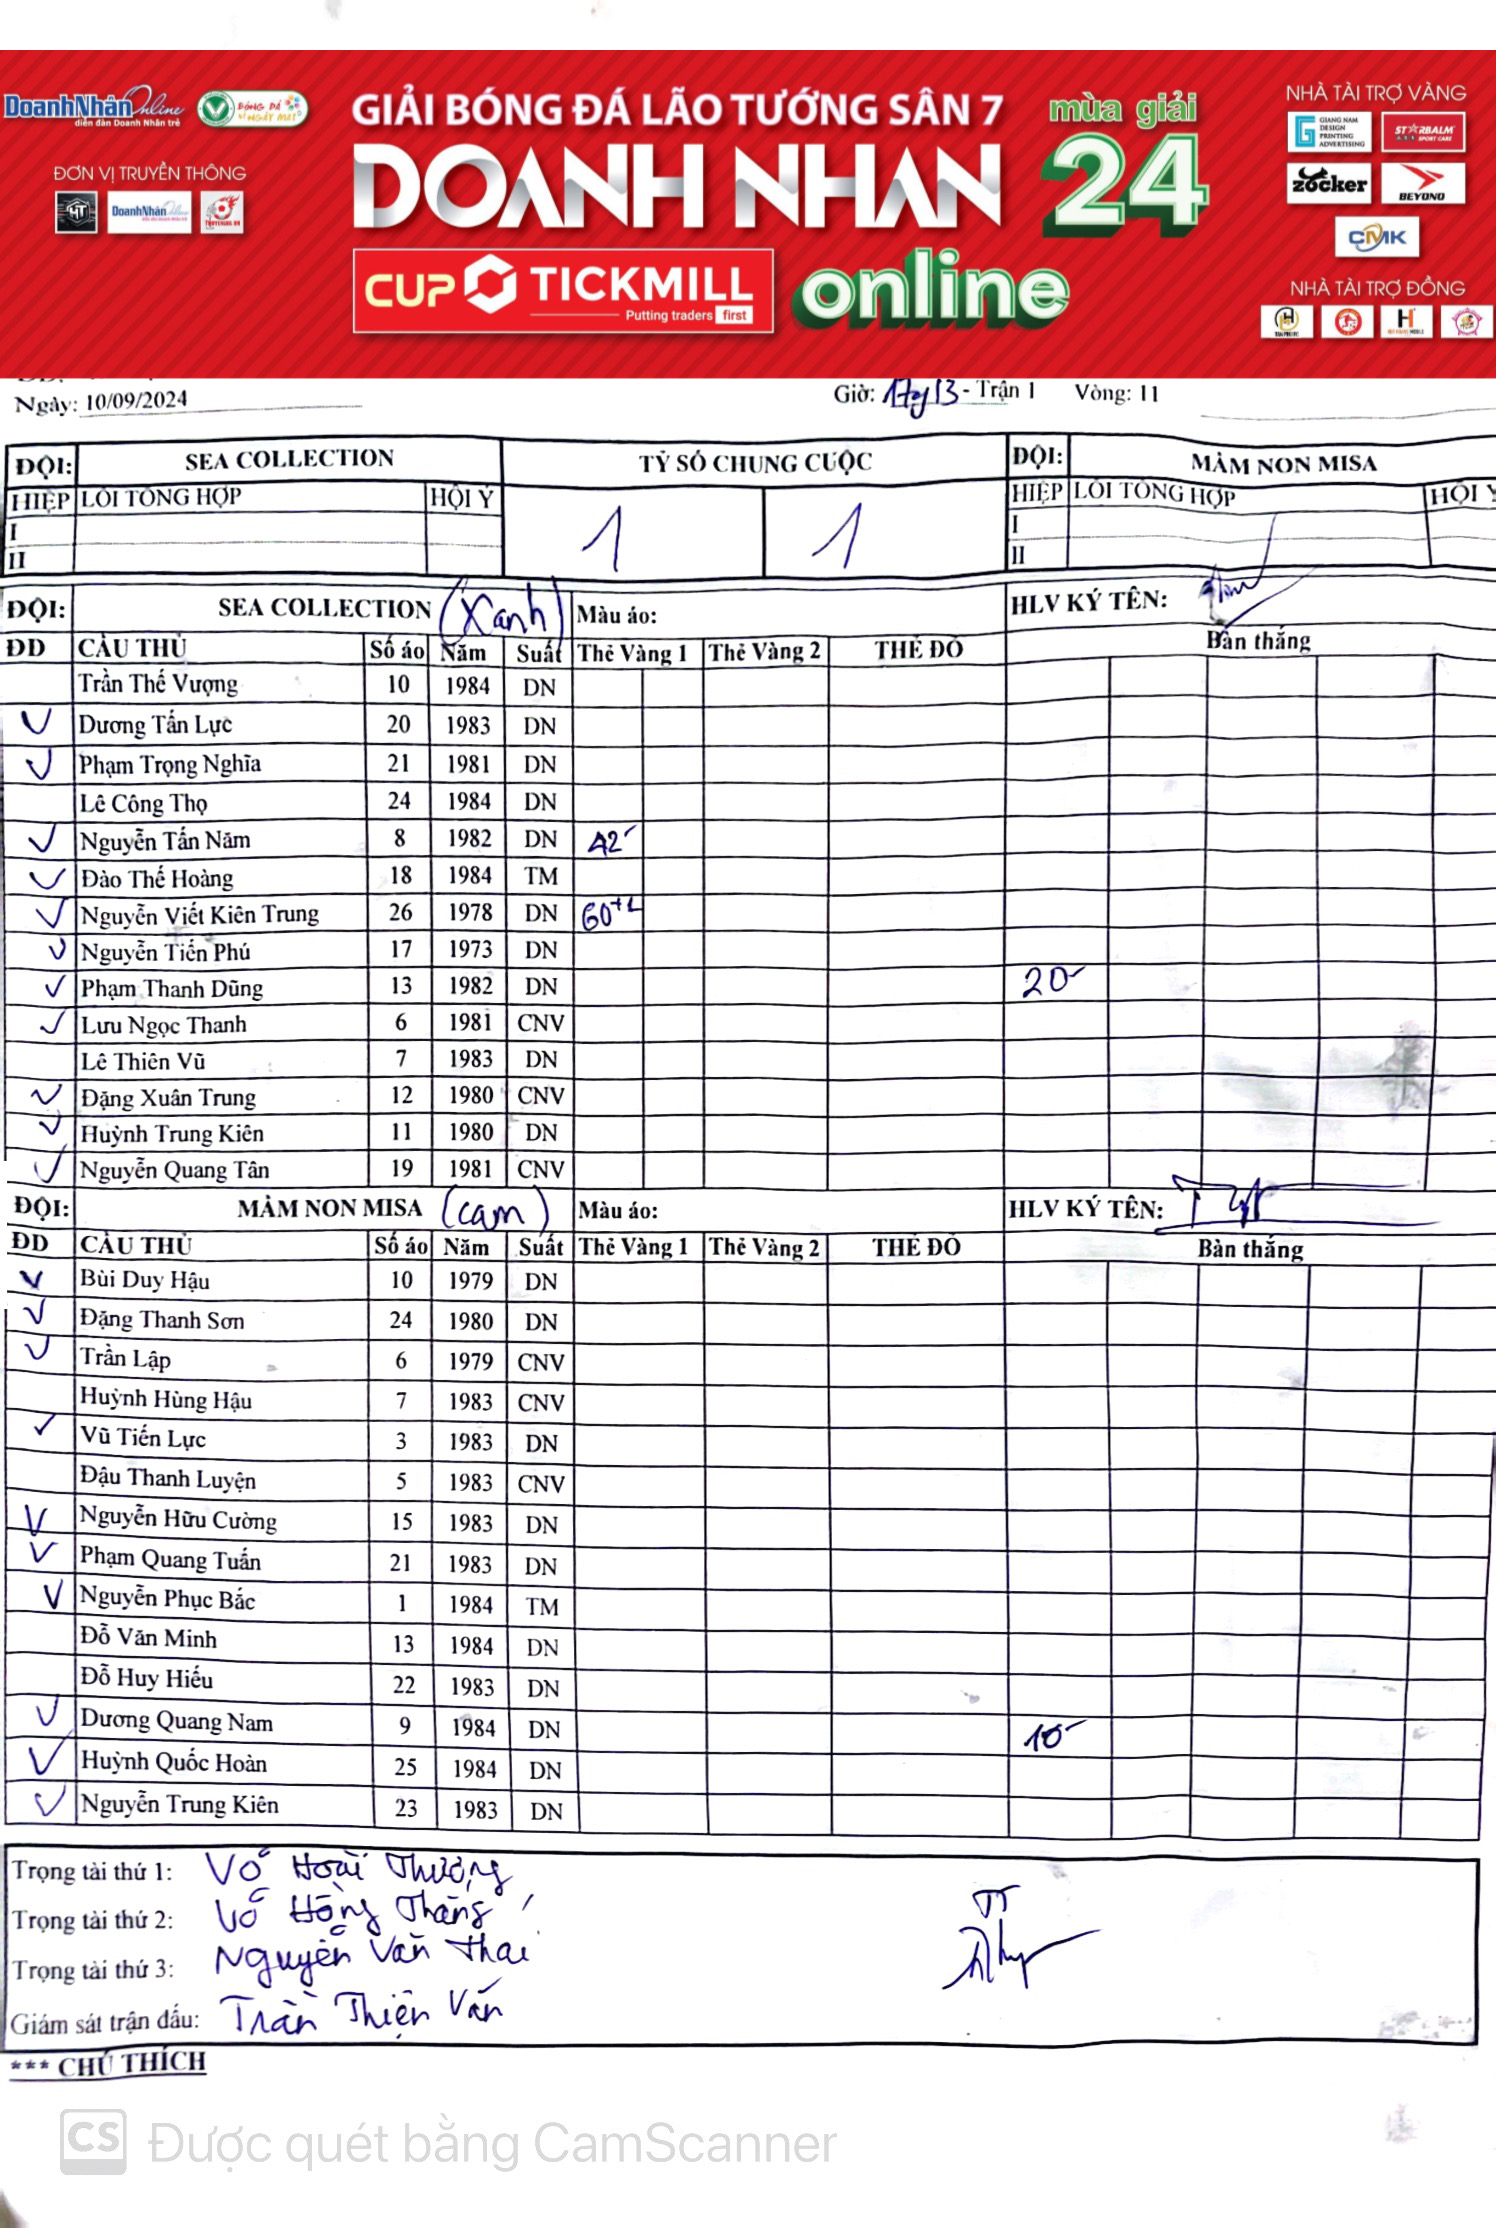 DoanhNhân Online
diễn đàn Doanh Nhân trẻ
BÓNG ĐÁ
VÌ NGÀY MAI
ĐƠN VỊ TRUYỀN THÔNG
DoanhNhân
GIẢI BÓNG ĐÁ LÃO TƯỚNG SÂN 7
DOANH NHAN
CUP TICKMILL
Putting traders first
online
mùa giải
24
NHÀ TÀI TRỢ VÀNG
GIANG NAM
DESIGN
PRINTING
ADVERTISING
STARBALM
SPORT CARE
zócker
BEYONO
CMK
NHÀ TÀI TRỢ ĐỒNG
Ngày: 10/09/2024 Giờ: 17g13 - Trận 1 Vòng: 11
ĐỘI: SEA COLLECTION TỶ SỐ CHUNG CUỘC ĐỘI: MẦM NON MISA
HIỆP LỖI TỔNG HỢP HỘI Ý 1 1 HIỆP LỖI TỔNG HỢP HỘI Ý
I I
II II
ĐỘI: SEA COLLECTION (Xanh) Màu áo: HLV KÝ TÊN:
ĐD CẦU THỦ Số áo Năm Suất Thẻ Vàng 1 Thẻ Vàng 2 THẺ ĐỎ Bàn thắng
Trần Thế Vượng 10 1984 DN
Dương Tấn Lực 20 1983 DN
Phạm Trọng Nghĩa 21 1981 DN
Lê Công Thọ 24 1984 DN
Nguyễn Tấn Năm 8 1982 DN 42'
Đào Thế Hoàng 18 1984 TM
Nguyễn Viết Kiên Trung 26 1978 DN 60+1
Nguyễn Tiến Phú 17 1973 DN
Phạm Thanh Dũng 13 1982 DN 20'
Lưu Ngọc Thanh 6 1981 CNV
Lê Thiên Vũ 7 1983 DN
Đặng Xuân Trung 12 1980 CNV
Huỳnh Trung Kiên 11 1980 DN
Nguyễn Quang Tân 19 1981 CNV
ĐỘI: MẦM NON MISA (cam) Màu áo: HLV KÝ TÊN:
ĐD CẦU THỦ Số áo Năm Suất Thẻ Vàng 1 Thẻ Vàng 2 THẺ ĐỎ Bàn thắng
Bùi Duy Hậu 10 1979 DN
Đặng Thanh Sơn 24 1980 DN
Trần Lập 6 1979 CNV
Huỳnh Hùng Hậu 7 1983 CNV
Vũ Tiến Lực 3 1983 DN
Đậu Thanh Luyện 5 1983 CNV
Nguyễn Hữu Cường 15 1983 DN
Phạm Quang Tuấn 21 1983 DN
Nguyễn Phục Bắc 1 1984 TM
Đỗ Văn Minh 13 1984 DN
Đỗ Huy Hiếu 22 1983 DN
Dương Quang Nam 9 1984 DN 10'
Huỳnh Quốc Hoàn 25 1984 DN
Nguyễn Trung Kiên 23 1983 DN
Trọng tài thứ 1: Võ Hoài Thương
Trọng tài thứ 2: Võ Hồng Thắng
Trọng tài thứ 3: Nguyễn Văn Thai
Giám sát trận đấu: Trần Thiện Văn
TT
*** CHÚ THÍCH
CS Được quét bằng CamScanner